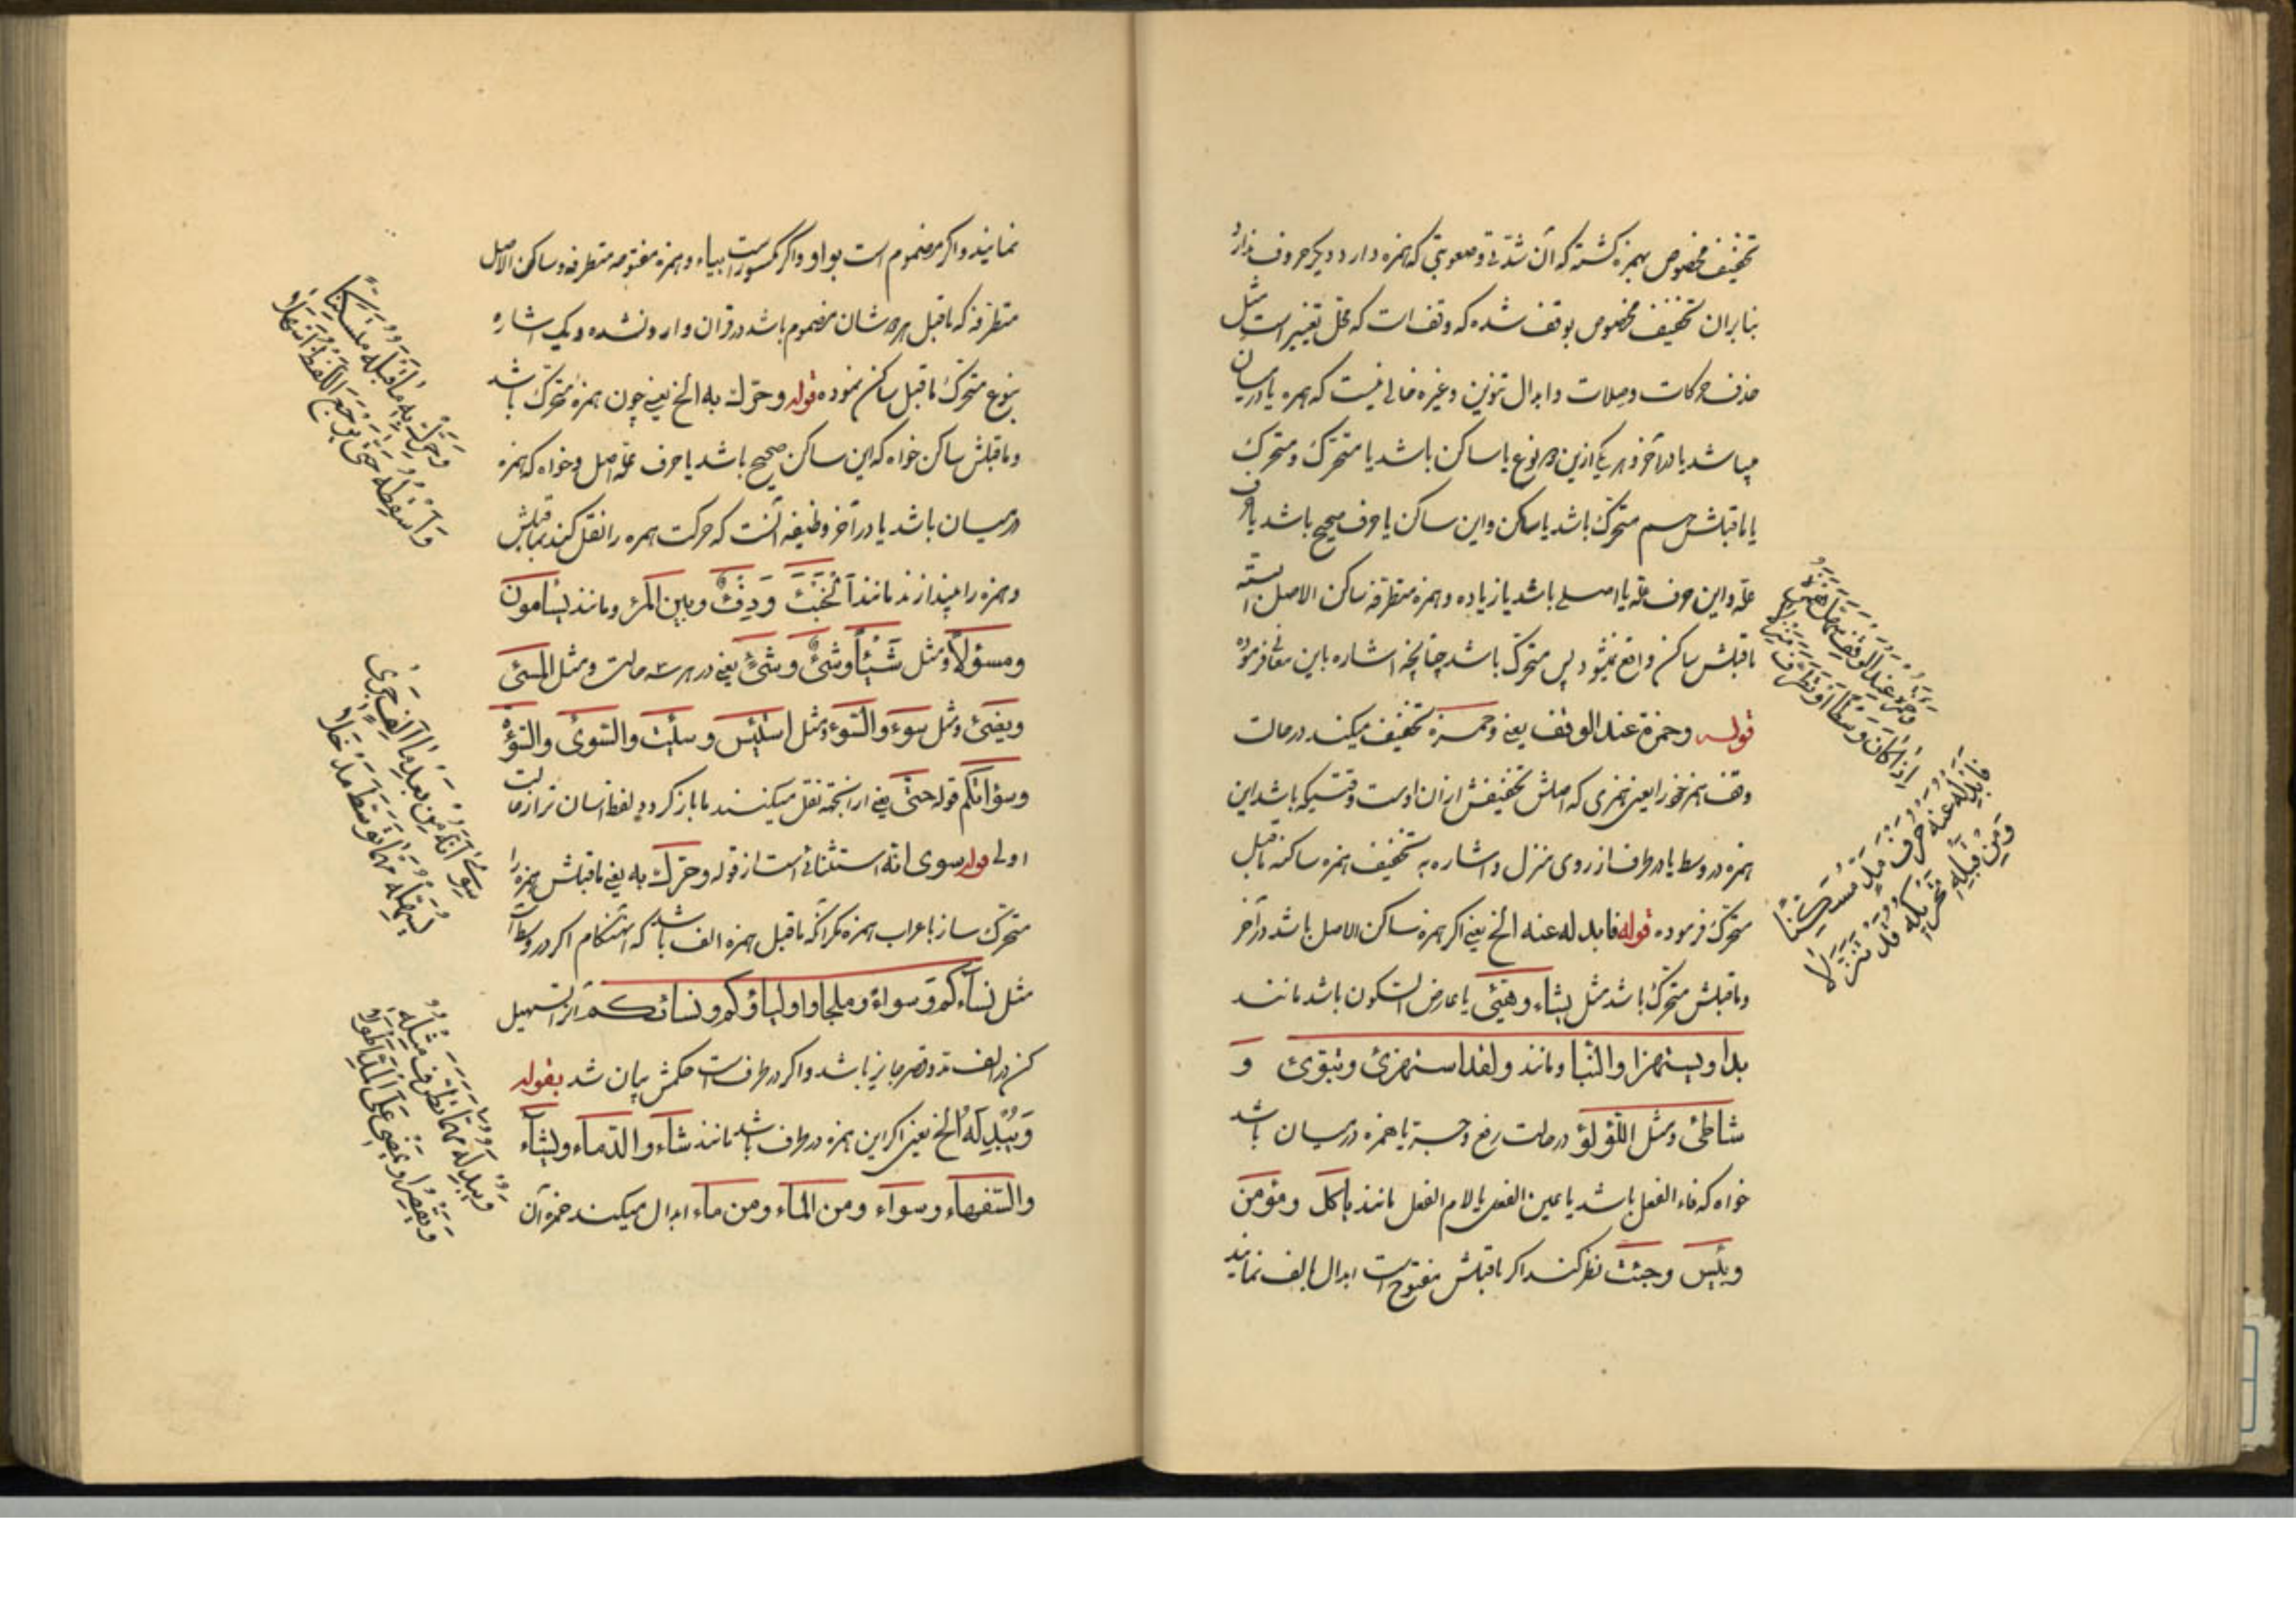 تخفیف مخصوص بهمزه کشته که آن شدتی و صعوبتی که همزه دارد دیکر حروف ندارد
بنابران تخفیف مخصوص بوقف شده که وقف است که محل تغییر است مثل
حذف حرکات و صلات و ابدال تنوین و غیره خالی نیست که همزه یا درمیان
میباشد یا در آخر و هر یکی ازین دو نوع یا ساکن باشد یا متحرک و متحرک
یا ماقبلش هم متحرک باشد یا ساکن و این ساکن یا حرف صحیح باشد یا حرف
علّه و این حرف علّه یا اصلی باشد یا زیاده و همزه متطرفه ساکن الاصل البته
ماقبلش ساکن واقع نمیشود پس متحرک باشد چنانچه اشاره باین معانی فرموده
قوله وحمزة عند الوقف یعنی و حمزه تخفیف میکند در حالت
وقف همز خود را یعنی همزی که اصلش تخفیفش از ان اوست وقتیکه باشد این
همزه در وسط یا در طرف از روی منزل و اشاره به تخفیف همزه ساکنه ماقبل
متحرک فرموده قوله فابدله عنه الخ یعنی اکر همزه ساکن الاصل باشد در آخر
و ماقبلش متحرک باشد مثل یشاء و هیئ یا عارض السکون باشد مانند
بدا و یستهزا والنبا و مانند ولقد استهزئ و تبوئ و
شاطئ و مثل اللؤلؤ در حالت رفع و جر یا همزه درمیان باشد
خواه که فاء الفعل باشد یا عین الفعل یا لام الفعل مانند یاکل و مؤمن
وبئس وجئت نظر کنند اکر ماقبلش مفتوح است ابدال بالف نمایند
وَحَمْزَةُ عِنْدَ الْوَقْفِ سَهَّلَ هَمْزَهُ
اِذَا كَانَ وَسْطًا اَوْ تَطَرَّفَ مَنْزِلًا
فَاَبْدِلْهُ عَنْهُ حَرْفَ مَدٍّ مُسَكِّنًا
وَمِنْ قَبْلِهِ تَحْرِيكُهُ قَدْ تَنَزَّلَا
نمایند و اکر مضموم است بواو و اکر مکسور است بیاء و همزه مفتوحه متطرفه و ساکن الاصل
متطرفه که ماقبل هر دو شان مضموم باشد در قران وارد نشده و یک اشاره
بنوع متحرک ماقبل ساکن نموده قوله وحرّك به الخ یعنی چون همزه متحرک باشد
و ماقبلش ساکن خواه که این ساکن صحیح باشد یا حرف علّه اصل و خواه که همزه
درمیان باشد یا در آخر وظیفه آنست که حرکت همزه را نقل کنند بماقبلش
و همزه را بیندازند مانند اَلْخَبْءَ وَدِفْءٌ وبین المرء و مانند یسأمون
ومسؤلاً و مثل شَیْئاً وشیءٌ وشیءٍ یعنی در هر سه حالت و مثل المسئ
ویضئ و مثل سوء والسوء و مثل استیئس و سیئت والسوئ والسوء
وسؤاتکم قوله حتّی یعنی ازانجهة نقل میکنند تا باز کردد لفظ اسان تر از حالت
اولی قوله سوی انّه استثنائی است از قوله وحرّك به یعنی ماقبلش همزه را
متحرک ساز باعراب همزه مکر آنکه ماقبل همزه الف باشد که انهنکام اکر در وسط است
مثل نساءکم و سواءً و ملجأ و اولیاؤکم و نسائکم آنرا تسهیل
کن در الف مد و قصر جایز باشد و اکر در طرف است حکمش بیان شد بقوله
وَیُبْدِلُهُ الخ یعنی اکر این همزه در طرف باشد مانند شاء والدّماء و یشاء
والسّفهاء وسواء ومن الماء ومن ماء ابدال میکند حمزه آن
وَحَرِّكْ بِهِ مَا قَبْلَهُ مُتَسَكِّنًا
وَاَسْقِطْهُ حَتَّى يَرْجِعَ اللَّفْظُ اَسْهَلَا
سِوَى اَنَّهُ مِنْ بَعْدِ مَا اَلِفٍ جَرَى
يُسَهِّلُهُ مَهْمَا تَوَسَّطَ مَدْخَلَا
وَيُبْدِلُهُ مَهْمَا تَطَرَّفَ مِثْلَهُ
وَيَقْصُرُ اَوْ يَمْضِي عَلَى الْمَدِّ اَطْوَلَا